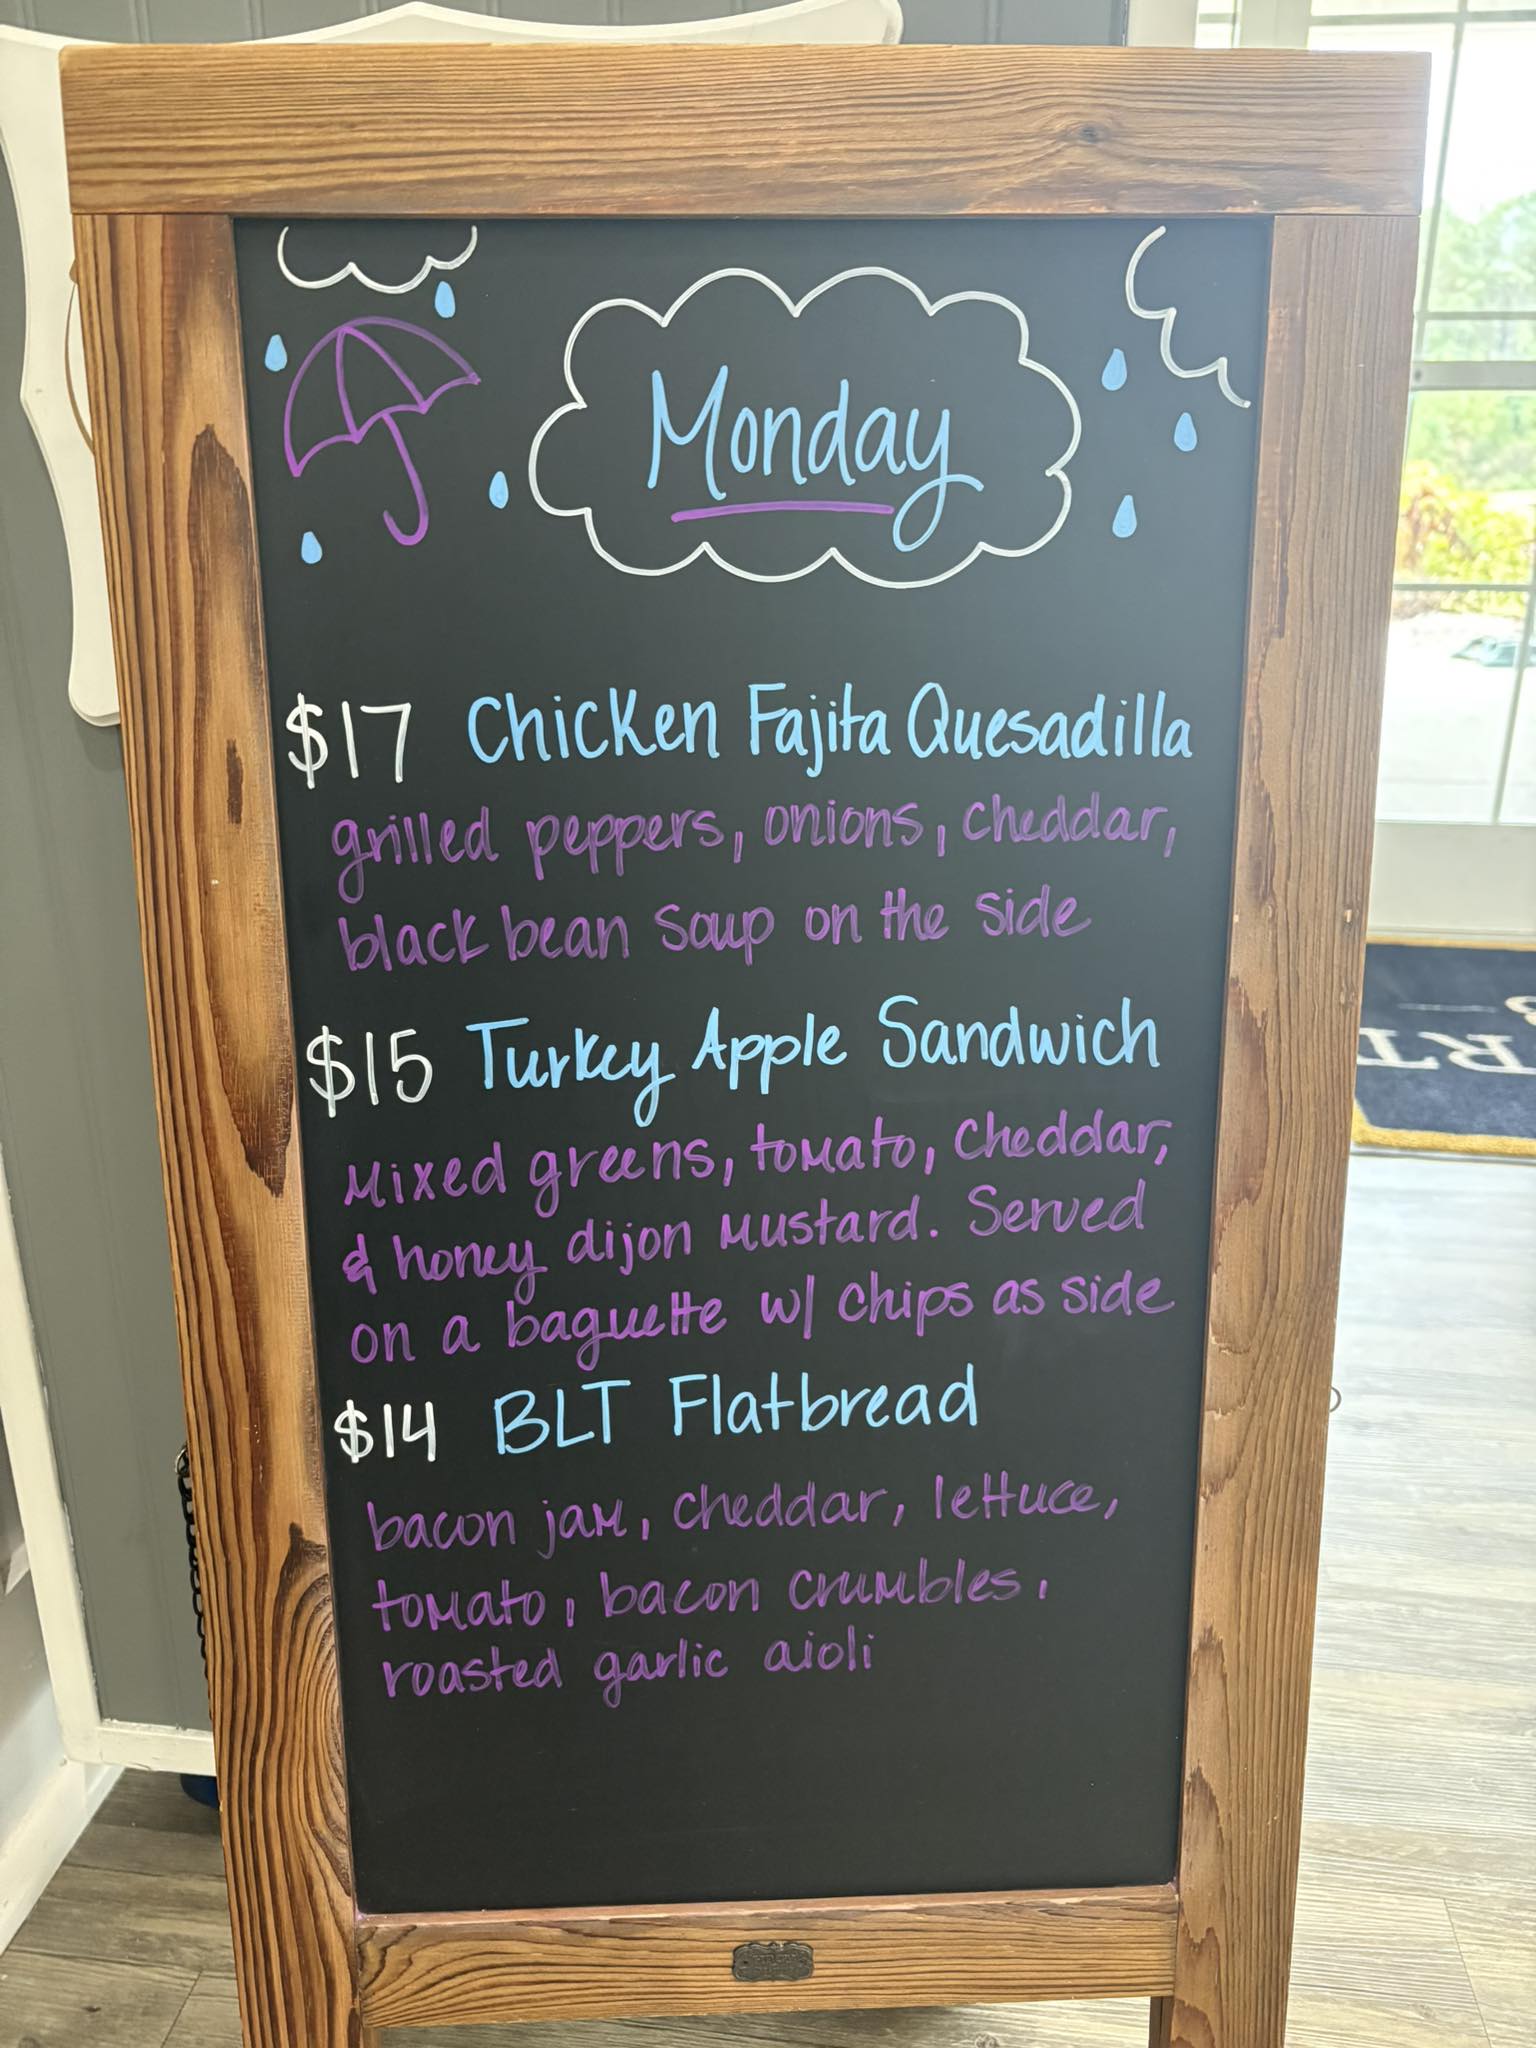 Monday
$17 Chicken Fajita Quesadilla
grilled peppers, onions, cheddar,
black bean soup on the side
$15 Turkey Apple Sandwich
Mixed greens, tomato, cheddar,
& honey dijon mustard. Served
on a baguette w/ chips as side
$14 BLT Flatbread
bacon jam, cheddar, lettuce,
tomato, bacon crumbles,
roasted garlic aioli